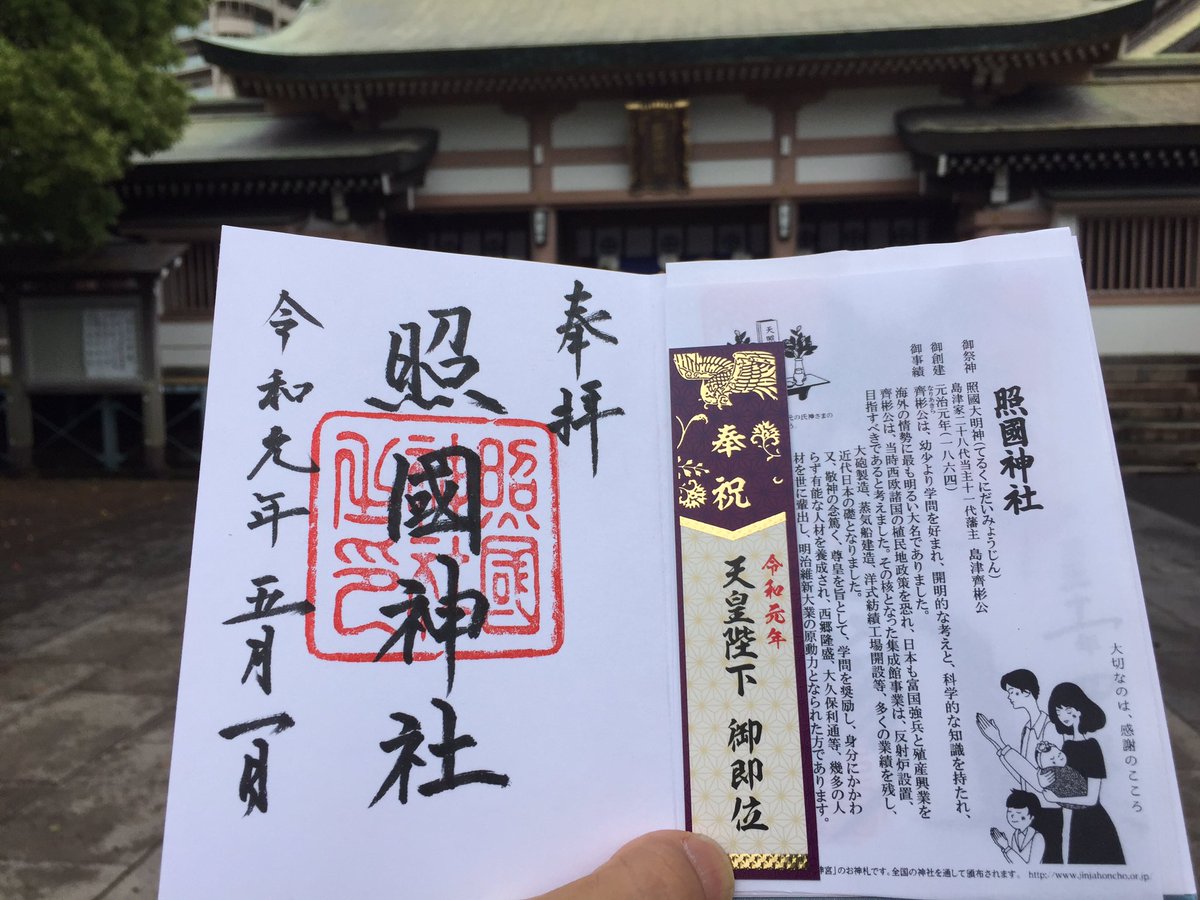 奉拝
照國神社
照國神社之印
令和元年五月一日
大切なのは、感謝のこころ
照國神社
御祭神 照國大明神(てるくにだいみょうじん)
島津家二十八代当主十一代藩主 島津齊彬公
御創建 元治元年(一八六四)
なりあきら
御事績 齊彬公は、幼少より学問を好まれ、開明的な考えと、科学的な知識を持たれ、
海外の情勢に最も明るい大名でありました。
齊彬公は、当時西欧諸国の植民地政策を恐れ、日本も富国強兵と殖産興業を
目指すべきであると考えました。その核となった集成館事業は、反射炉設置、
大砲製造、蒸気船建造、洋式紡績工場開設等、多くの業績を残し、
近代日本の礎となりました。
又、敬神の念篤く、尊皇を旨として、学問を奨励し、身分にかかわ
らず有能な人材を養成され、西郷隆盛、大久保利通等、幾多の人
材を世に輩出し、明治維新大業の原動力となられた方であります。
元の氏神さまの
奉祝
令和元年
天皇陛下 御即位
神宮」のお神札です。全国の神社を通して頒布されます。 http://www.jinjahoncho.or.jp